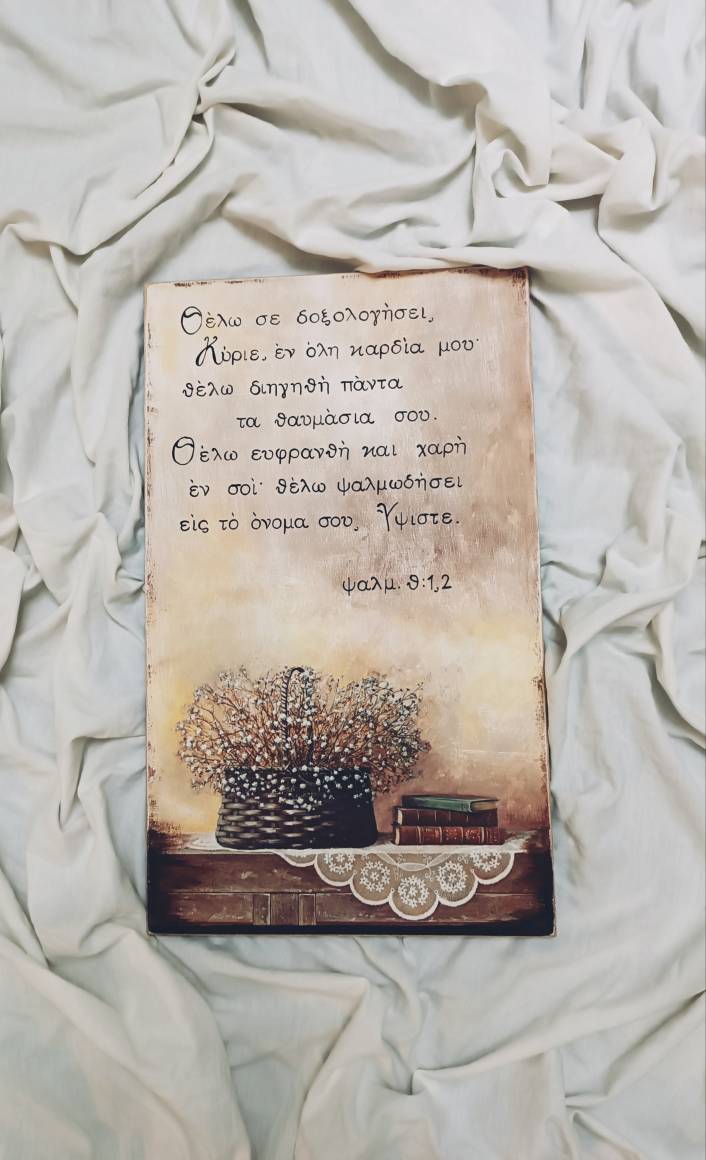 Θὲλω σε δοξολογὴσει,
Κὺριε, ὲν ὸλη καρδὶα μου·
θὲλω διηγηθὴ πὰντα
τα θαυμὰσια σου.
Θὲλω ευφρανθὴ και χαρὴ
ὲν σοὶ· θὲλω ψαλμωδὴσει
εὶς τὸ ὸνομα σου, Ύψιστε.
ψαλμ. θ:1,2